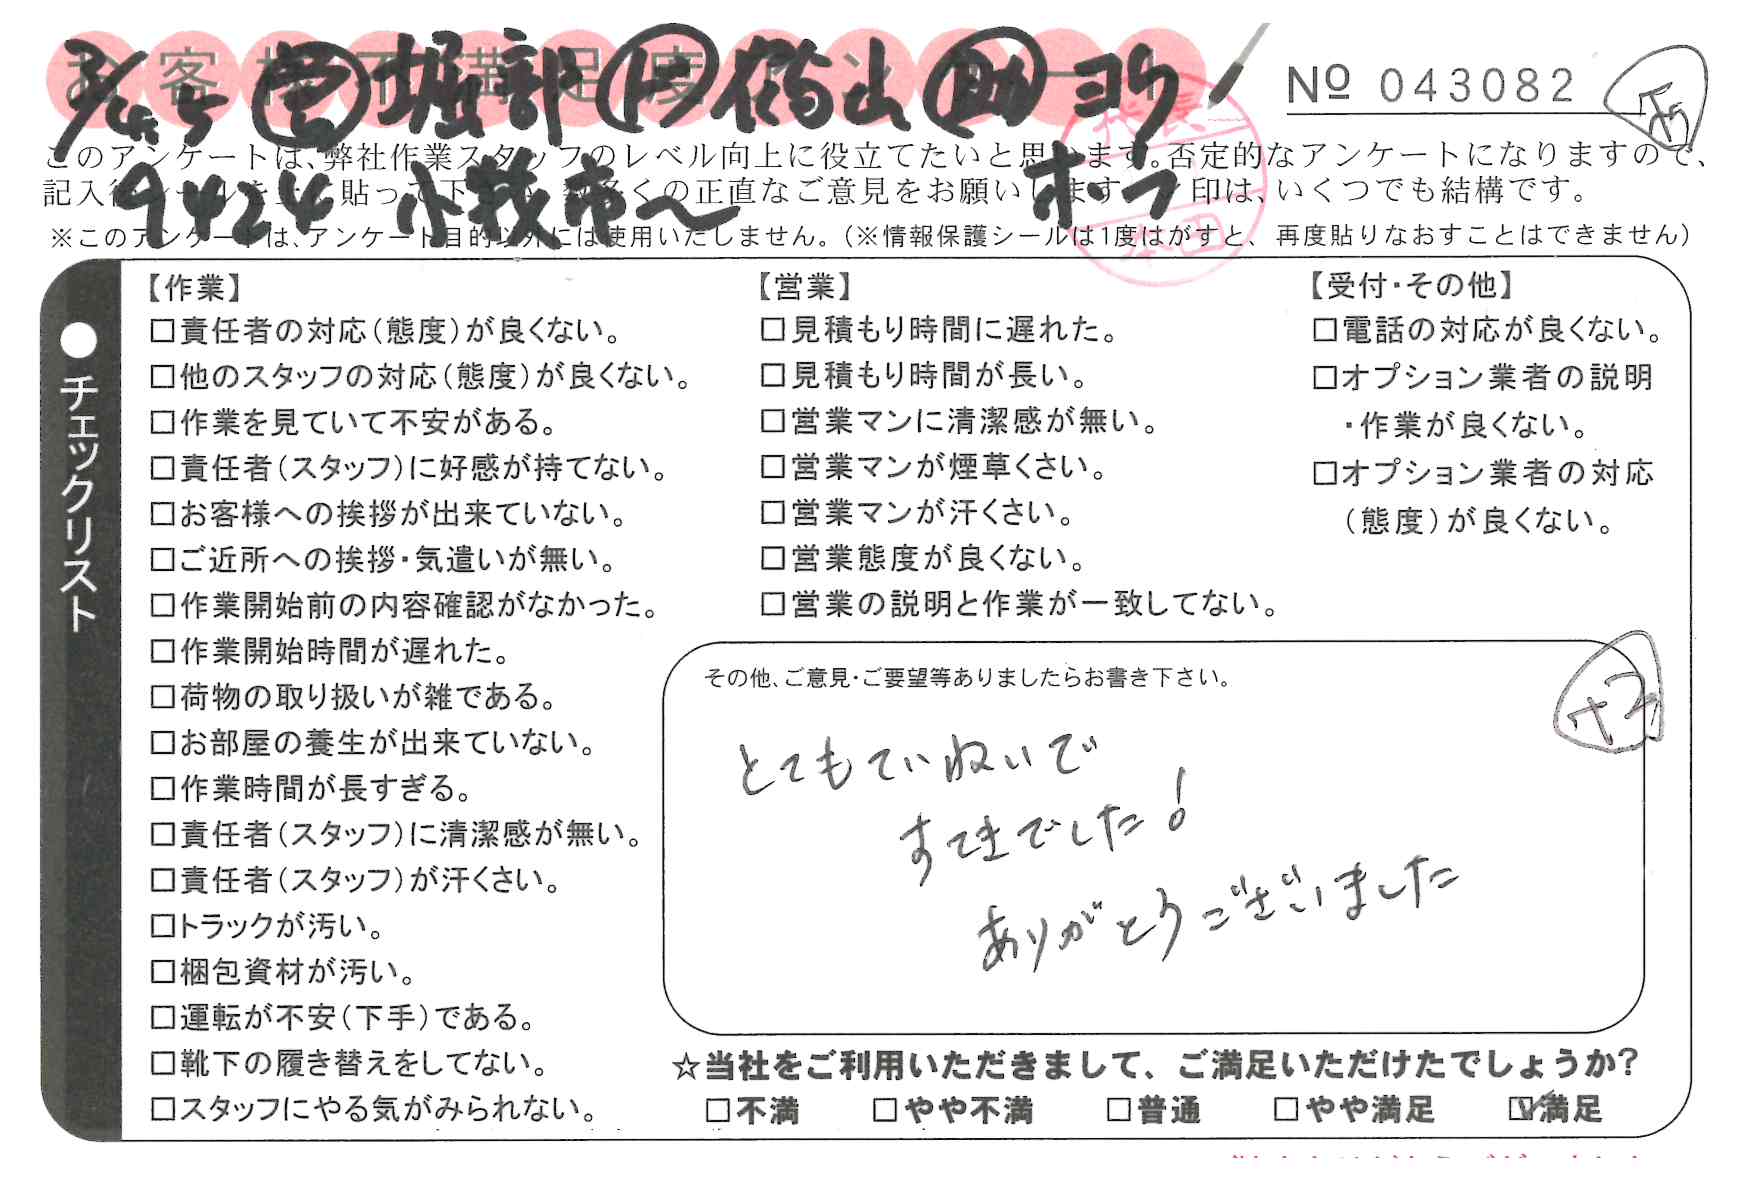 お客様不満足度アンケート
営 堀部 助 ヨウ
No 043082
このアンケートは、弊社作業スタッフのレベル向上に役立てたいと思います。否定的なアンケートになりますので、
9424 小牧市〜 オフ
の正直なご意見をお願いします 印は、いくつでも結構です。
※このアンケートは、アンケート目的以外には使用いたしません。(※情報保護シールは1度はがすと、再度貼りなおすことはできません)
代表
本田
●チェックリスト
【作業】
□責任者の対応(態度)が良くない。
□他のスタッフの対応(態度)が良くない。
□作業を見ていて不安がある。
□責任者(スタッフ)に好感が持てない。
□お客様への挨拶が出来ていない。
□ご近所への挨拶・気遣いが無い。
□作業開始前の内容確認がなかった。
□作業開始時間が遅れた。
□荷物の取り扱いが雑である。
□お部屋の養生が出来ていない。
□作業時間が長すぎる。
□責任者(スタッフ)に清潔感が無い。
□責任者(スタッフ)が汗くさい。
□トラックが汚い。
□梱包資材が汚い。
□運転が不安(下手)である。
□靴下の履き替えをしてない。
□スタッフにやる気がみられない。
【営業】
□見積もり時間に遅れた。
□見積もり時間が長い。
□営業マンに清潔感が無い。
□営業マンが煙草くさい。
□営業マンが汗くさい。
□営業態度が良くない。
□営業の説明と作業が一致してない。
【受付・その他】
□電話の対応が良くない。
□オプション業者の説明
・作業が良くない。
□オプション業者の対応
(態度)が良くない。
その他、ご意見・ご要望等ありましたらお書き下さい。
とてもていねいで
すてきでした!
ありがとうございました
☆当社をご利用いただきまして、ご満足いただけたでしょうか?
□不満 □やや不満 □普通 □やや満足 ☑満足